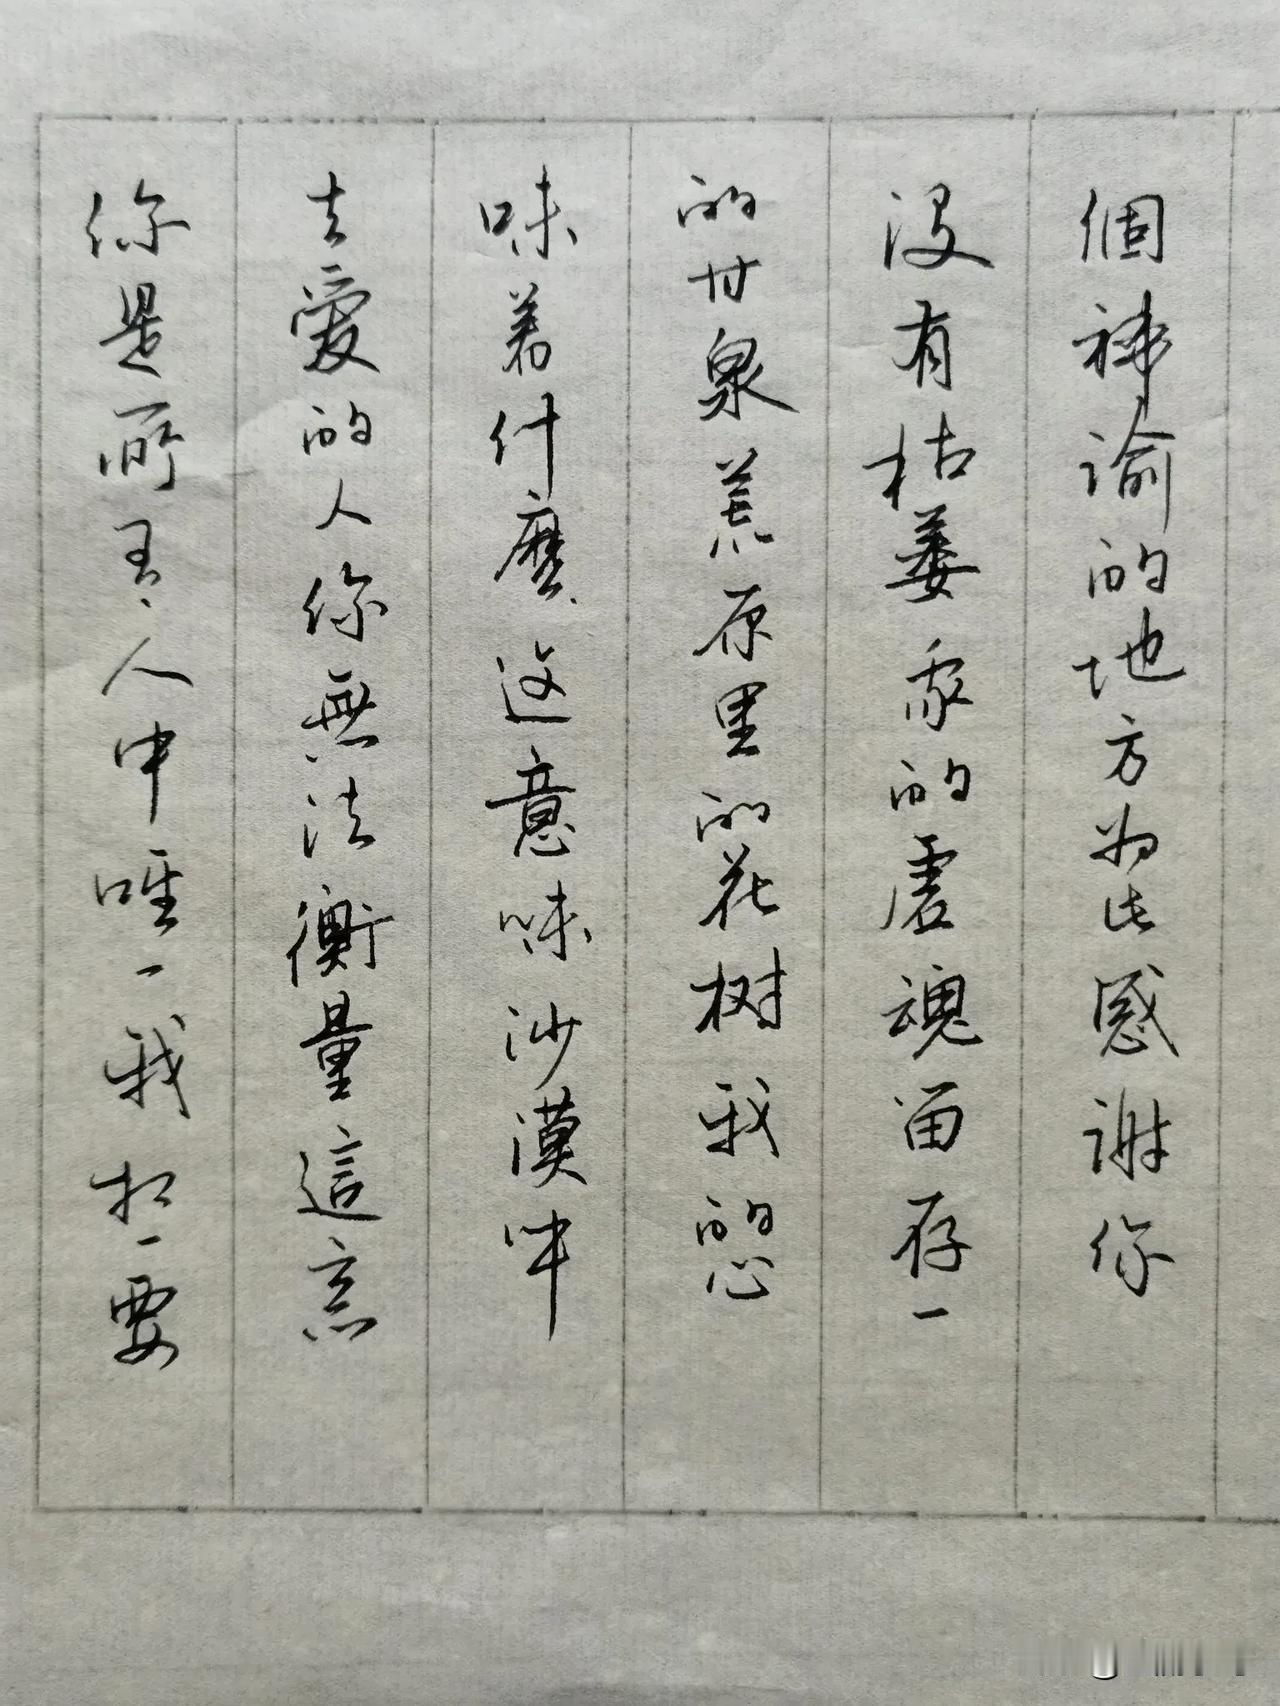 個神谕的地方为此感谢你
没有枯萎家的虚魂留存一
的甘泉荒原里的花树我的心
味着什麽这意味沙漠中
去爱的人你無法衡量這意
你是所有人中唯一我扣一要